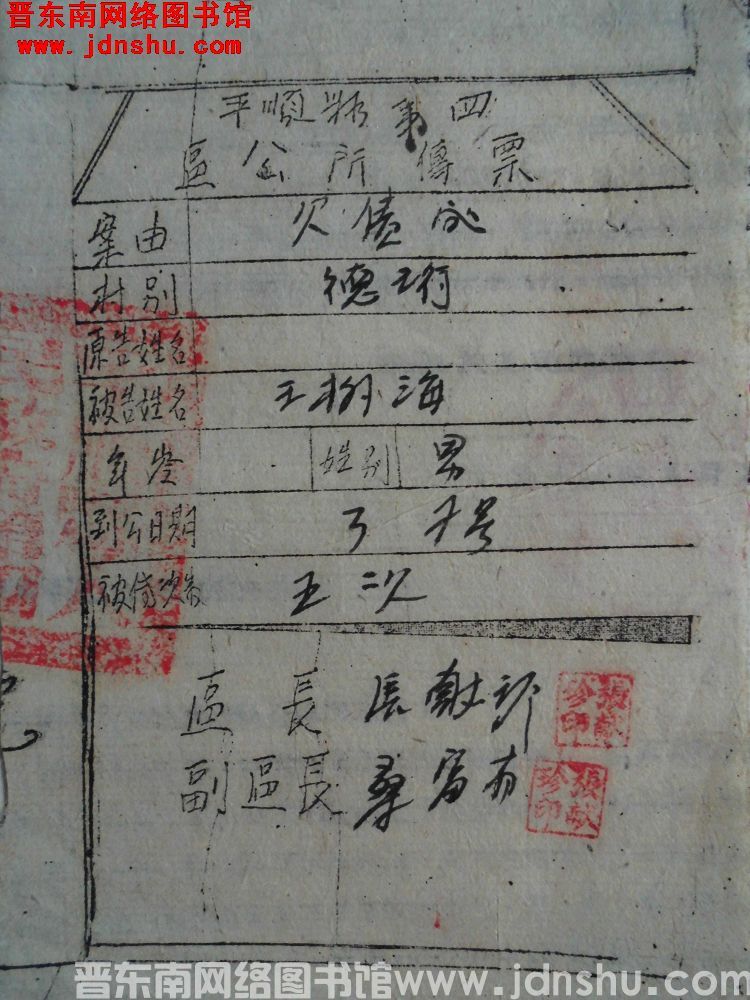 晋东南网络图书馆
www.jdnshu.com
平順縣第四
區公所傳票
案由 欠債
村别 德
原告姓名
被告姓名 王樹海
年 姓别 男
到公日期 号
被傳次数 二次
區長 張献珍
張献珍印
副區長 桑富有
張献珍印
晋东南网络图书馆www.jdnshu.com